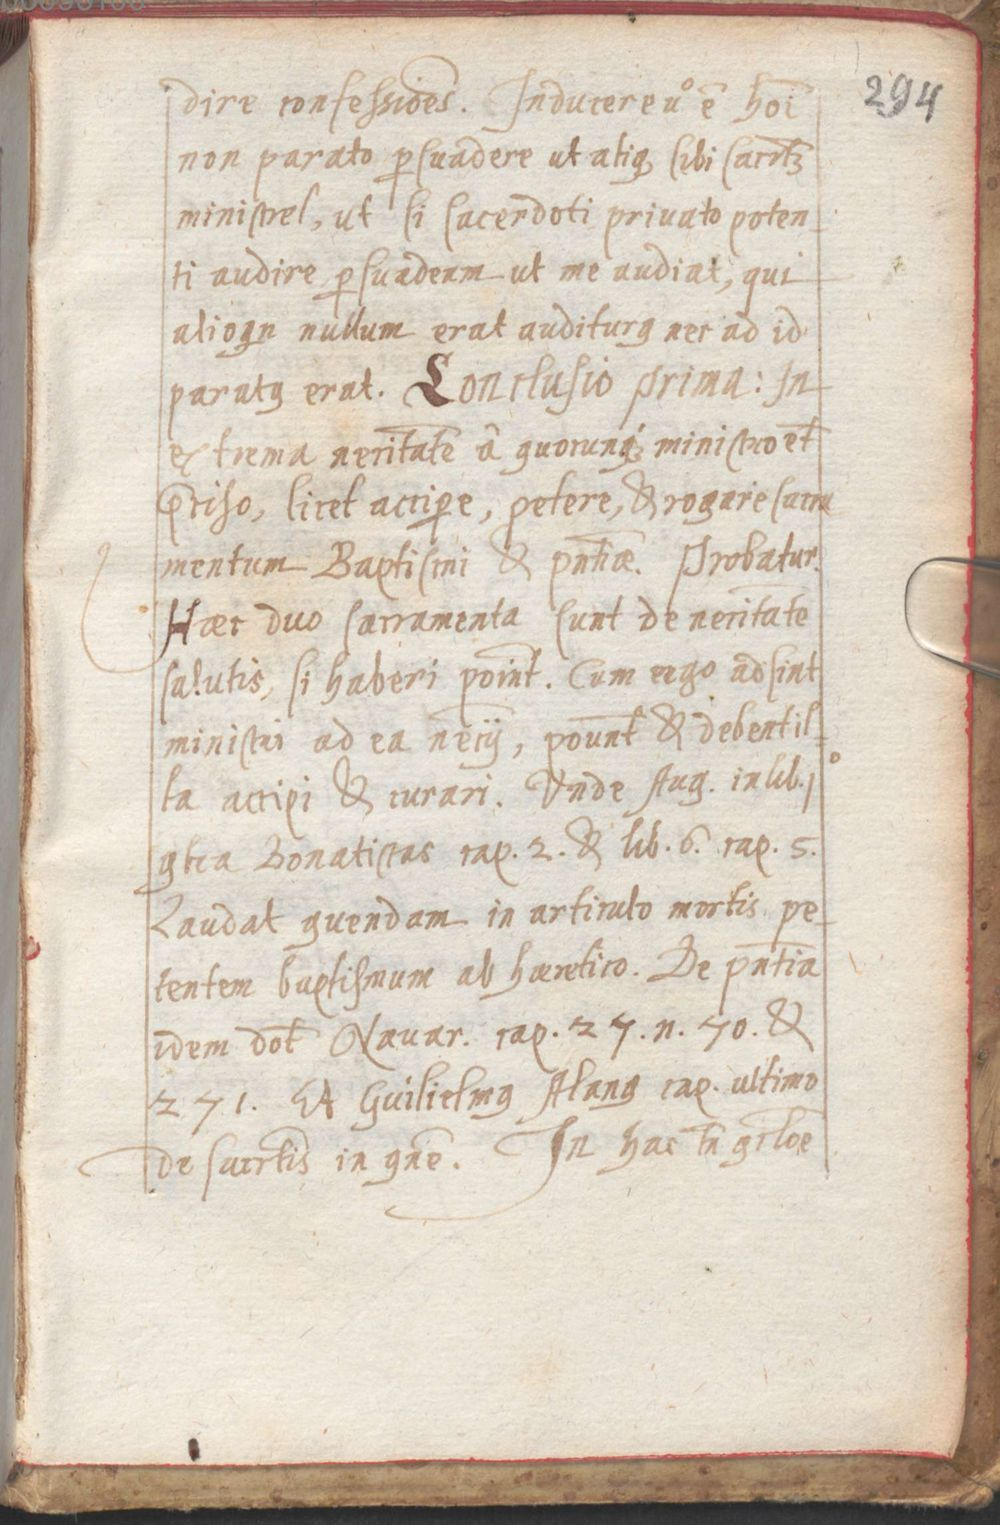 294
dire confessiões. Inducere uº ẽ hoĩ
non parato ꝑsuadere ut aliq̃ sibi sacrt̃ꝫ
ministret, ut si sacerdoti privato poten-
ti audire ꝑsuadeam ut me audiat, qui
alioqn nullum erat auditurꝰ nec ad id
paratꝰ erat. Conclusio prima: In
extrema nec̃itate à quocunqꝫ ministro et̃
p̃ciso, licet accipe, petere, & rogare sacra
mentum Baptismi & pñtiæ. Probatur.
Hæc duo sacramenta sunt de nec̃itate
salutis, si haberi point̃. Cum ergo adsint
ministri ad ea nẽcij, pount̃ & debent il-
la accipi & curari. Unde Aug. in lib. 1º
ꝯtra Donatistas cap. 2. & lib. 6. cap. 5.
Laudat quendam in articulo mortis pe-
tentem baptismum ab hæretico. De pñtia
idem dot̃ Navar. cap. 27. n. 70. &
271. Et Guilielmꝰ Alanꝰ cap. ultimo
de sacrt̃is in gñe. In hac tñ ꝯcl̃oe